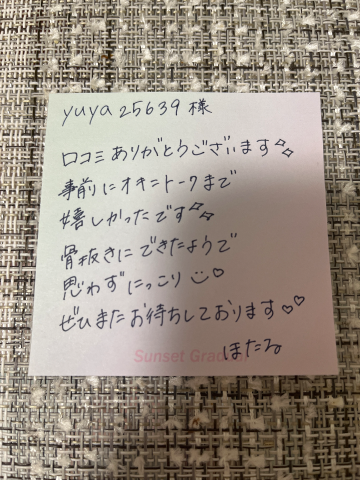 yuya25639様
口コミありがとうございます✨
事前にオキニトークまで
嬉しかったです✨
骨抜きにできたようで
思わずにっこり☺♡
ぜひまたお待ちしております♡♡
ほたる
Sunset Gradati